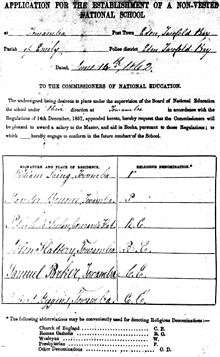 APPLICATION FOR THE ESTABLISHMENT OF A NON-VESTED
NATIONAL SCHOOL
at Towamba Post Town Eden Twofold Bay
Parish of Police district Eden Twofold Bay
Dated, June 14th 1862
TO THE COMMISSIONERS OF NATIONAL EDUCATION.
The undersigned being desirous to place under the supervision of the Board of National Education
the school under their direction at Towamba in accordance with the
Regulations of 14th December, 1857, appended hereto, hereby request that the Commissioners will
be pleased to award a salary to the Master, and aid in Books, pursuant to those Regulations; to
which hereby engage to conform in the future conduct of the School.
SIGNATURE AND PLACE OF RESIDENCE. RELIGIOUS DENOMINATION.*
Towamba P
Towamba P
R.C.
Towamba R.C.
Samuel Baker, Towamba C.E.
Towamba C.E.
* The following abbreviations may be conveniently used for denoting Religious Denominations:—
Church of England C. E.
Roman Catholic R. C.
Wesleyan W.
Presbyterian P.
Other Denominations O. D.